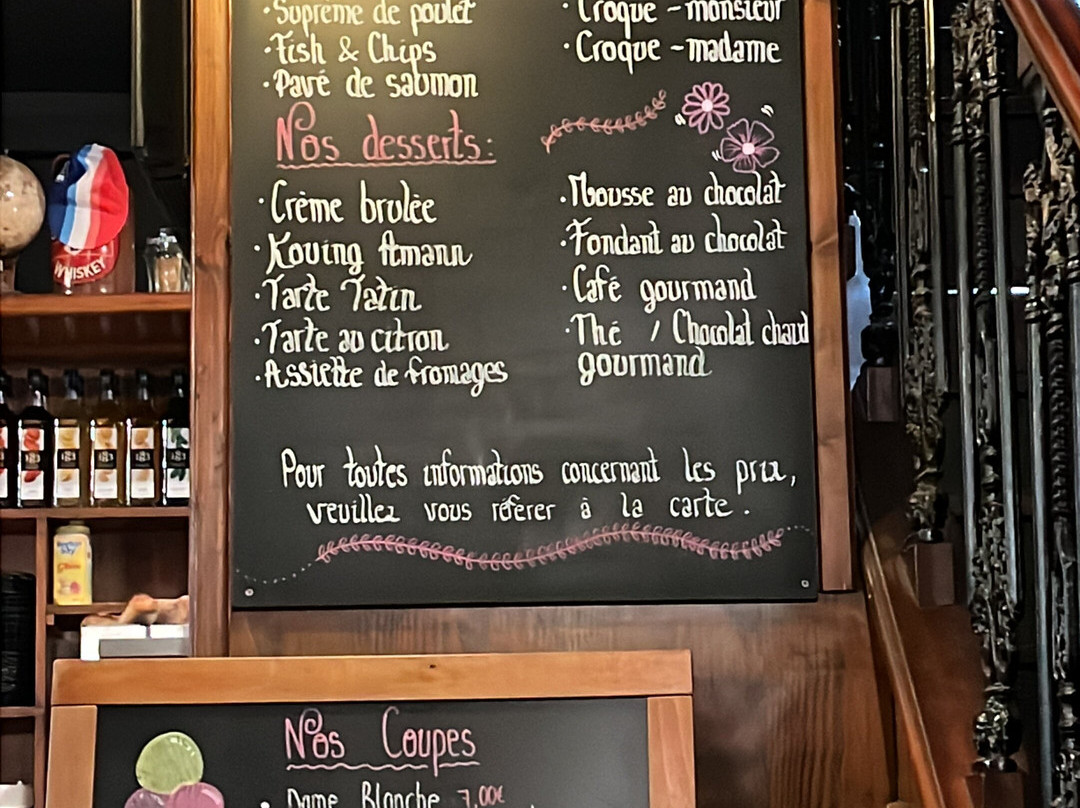 · Suprême de poulet
· Fish & Chips
· Pavé de saumon
· Croque - monsieur
· Croque - madame
Nos desserts:
· Crème brulée
· Kouing Amann
· Tarte Tatin
· Tarte au citron
· Assiette de fromages
· Mousse au chocolat
· Fondant au chocolat
· Café gourmand
· Thé / Chocolat chaud
gourmand
Pour toutes informations concernant les prix,
veuillez vous référer à la carte.
WHISKEY
Nos Coupes
• Dame Blanche 7,00€